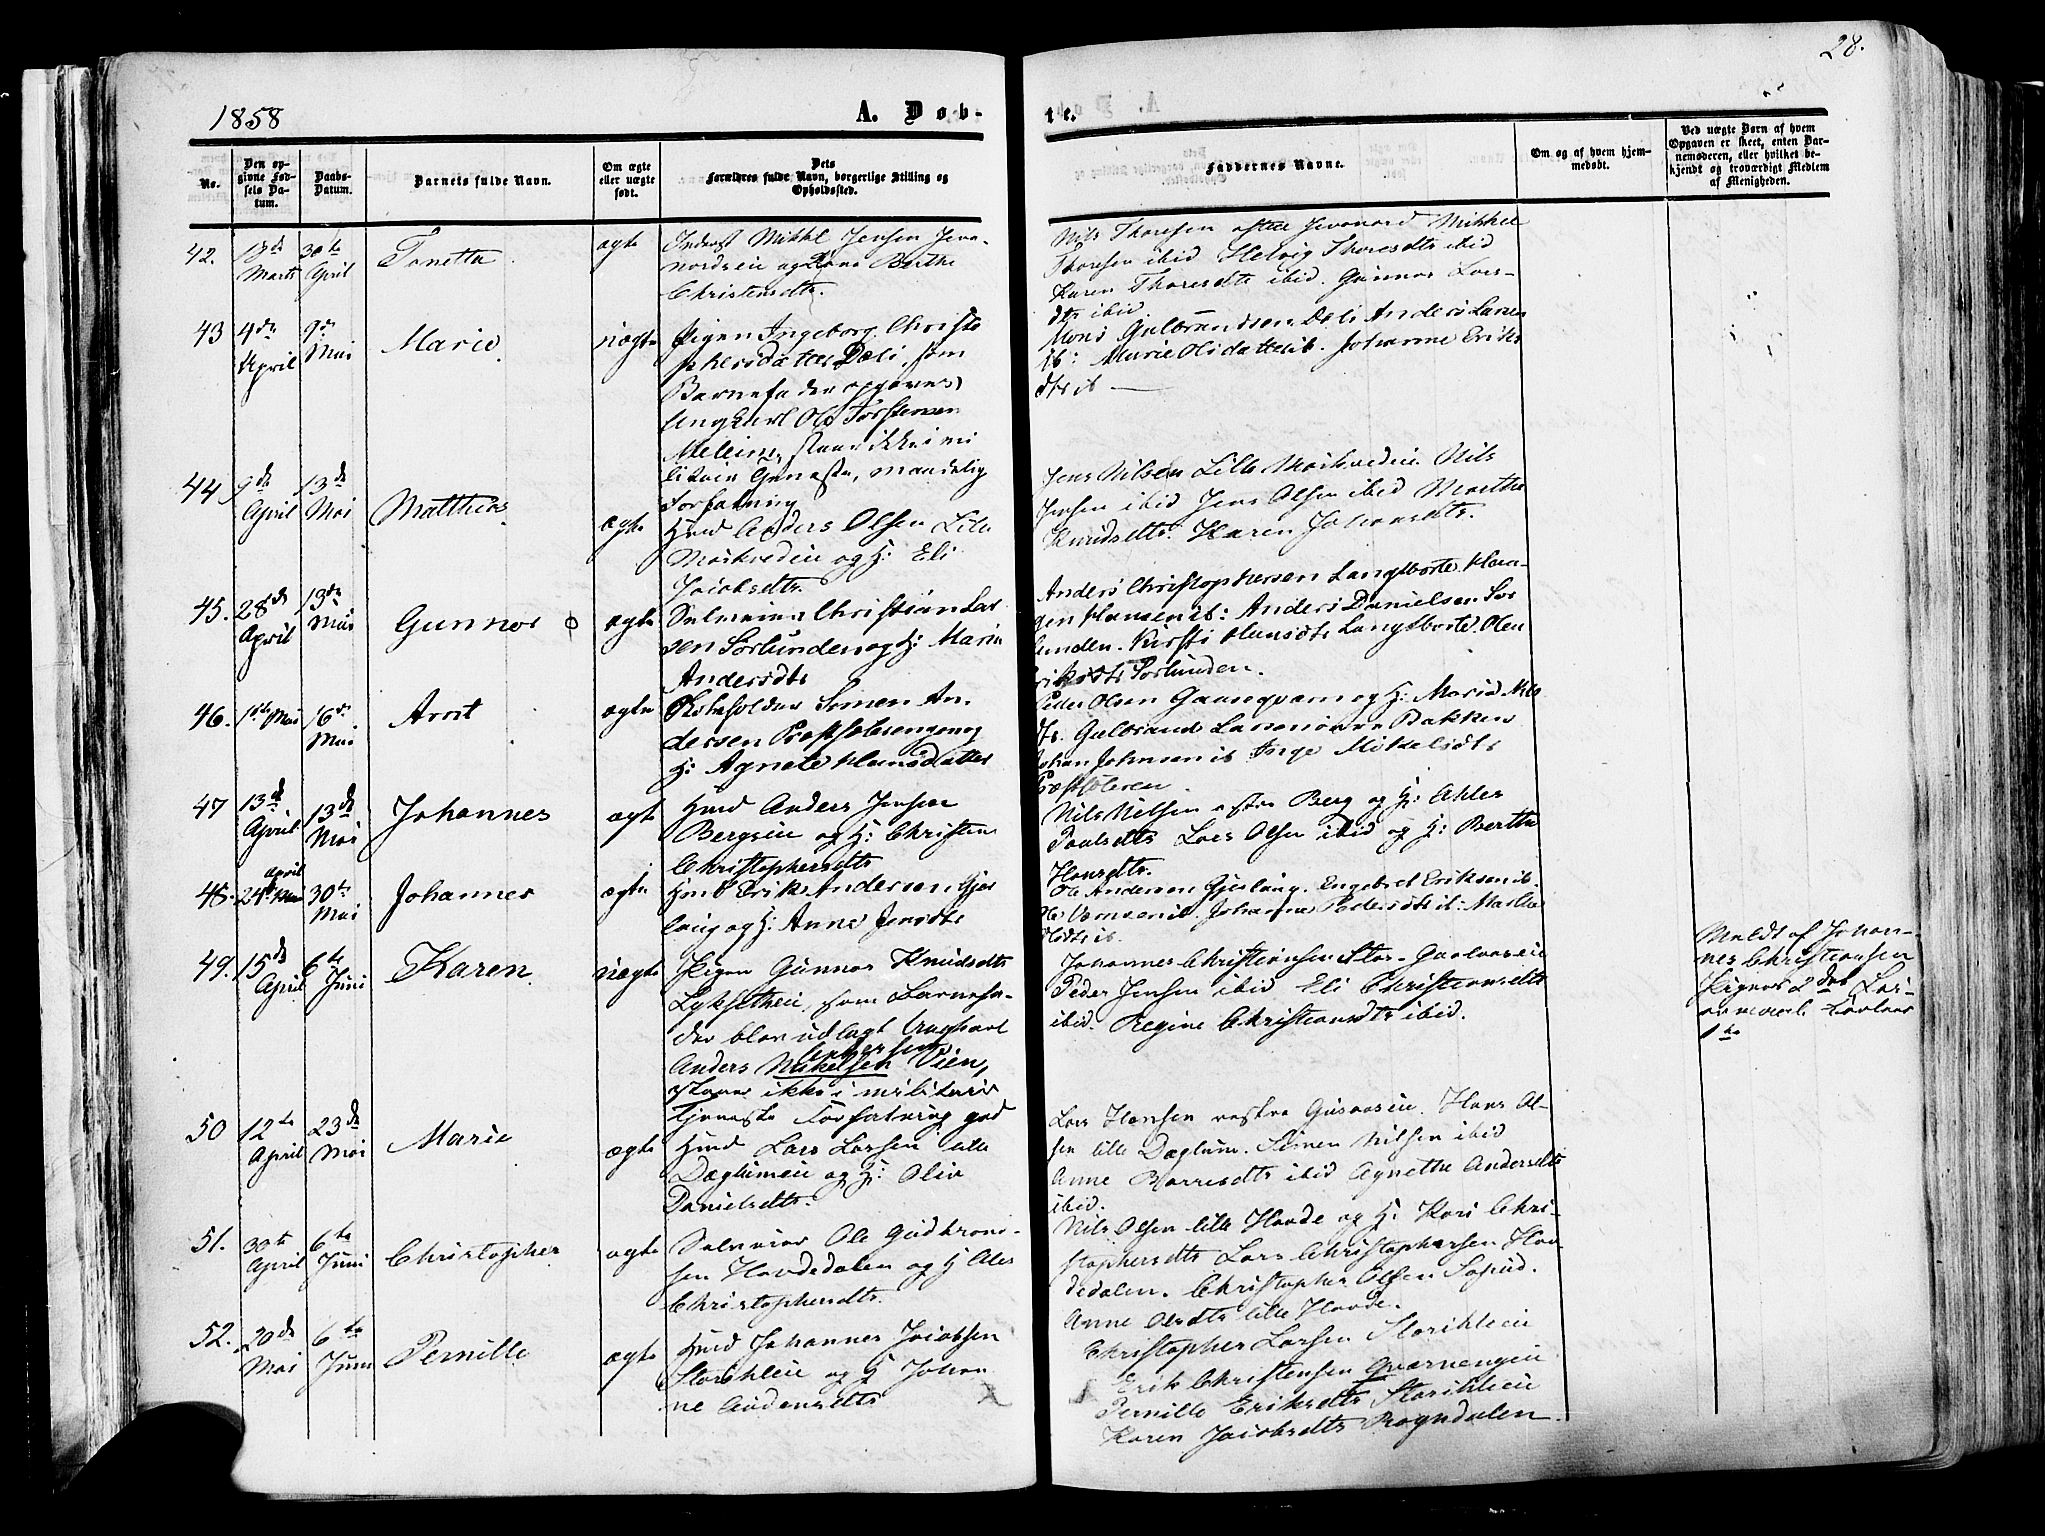 28.
1858
A. Døb-
te.
No.
Den op-
givne Fød-
sels Da-
tum.
Daabs-
Datum.
Barnets fulde Navn.
Om ægte
eller uægte
født.
Dets
Forældres fulde Navn, borgerlige Stilling og
Opholdssted.
Faddernes Navne.
Om og af hvem hjem-
medøbt.
Ved uægte Børn af hvem
Opgaven er skeet, enten Bar-
nemoderen, eller hvilket be-
kjendt og troværdigt Medlem
af Menigheden.
42.
13de
Marts
30te
April
Tonetta
ægte
Inderst Mikkel Jensen
og Kone Berthe
Christensdtr.
Nils Thoresen Mikkel
Thoresen ibid Helvig Thoresdtr ibid
Karen Thoresdtr ibid. Gunnor Lars-
dtr ibid.
43
4de
April
9de
Mai
Marie
uægte
Pigen Ingeborg Christo
phersdatter Dæli, som
Barnefader opgaves
Ungkarl Ole Torstensen
Meleim, staar ikke i mi
litair Tjeneste, mundtlig
Forfatning
Mons Gulbrandsen Dæli Anders Larsen
ib: Marie Olsdatter ib. Johanne Eriks
dtr ib
44
9de
April
13de
Mai
Matthias
ægte
Hmd Anders Olsen Lille
og H: Eli
Jacobsdtr.
Jens Nilsen Lille Nils
Jensen ibid Jens Olsen ibid Marthe
Knudsdtr. Karen Johansdtr.
45.
28de
April
13de
Mai
Gunnor
ægte
Selveier Christian Lar
sen Sørlunden og H: Marie
Andersdtr
Anders Christophersen Langtborte Haa-
gen Hansen ib: Anders Danielsen Sør
lunden. Kirsti Hansdtr Langtborte. Olea
Eriksdtr Sørlunden.
46.
1ste Mai
16de
Mai
Arnt
ægte
Simen An
dersen og
H: Agnete Hansdatter
Peder Olsen Gaaseqvarn og H: Maria Nils
dtr. Gulbrand Bakken
Johan Johnsen ib Inge Mikkelsdtr
47
13de
April
13de
Mai
Johannes
ægte
Hmd Anders Jensen
Bergseie og H: Christens
Christophersdtr
Nils Nilsen østre Berg og H: Ahles
Paulsdtr Lars Olsen ibid og H: Berthe
Hansdtr.
48.
April
24de Mai
30te
Mai
Johannes
ægte
Hmd Erik Andersen Gjes
laug og H: Anne Jensdtr
Ole Andersen Gjeslaug. Engebret Eriksen ib.
Johanne Pedersdtr ib: Marthe
Olsdtr ib.
49.
15de
April
6te
Juni
Karen
uægte
Pigen Gunnor Knudsdtr
Lyksetheie, som Barnefa-
der blev udlagt Ungkarl
Andersen
Anders Mikkelsen Vien,
staar ikke i militair
Tjeneste Forfatning god
Johannes Christiansen Stor-
Peder Jensen ibid Eli Christiansdtr
ibid. Regine Christiansdtr ibid.
Meldt af Johan-
nes Christiansen
Pigens 2det Lei-
ermaal Karlens
1te
50
12te
April
23de
Mai
Marie
ægte
Hmd Lars Larsen lille
Dæglumeie og H: Olia
Danielsdtr.
Lars Hansen vestre Hans Ol-
sen lille Dæglum. Simen Nilsen ibid
Anne ibid Agnethe Andersdtr
ibid.
51.
30te
April
6te
Juni
Christopher
ægte
Selveier Ole Gudbrand-
sen Hovdedalen og H Ales
Christophersdtr.
Nils Olsen lille Hovde og H. Kari Chri-
stophersdtr Lars Christophersen Hov-
dedalen. Christopher Olsen
Anne Olsdtr lille Hovde.
52.
20de
Mai
6te
Juni
Pernille
ægte
Hmd Johannes Jacobsen
Storihleie og H Johan
ne Andersdtr
Christopher Larsen Storihleie
Erik Christensen Qværnengeie
Pernille Eriksdtr Storihleie
Karen Jacobsdtr Rogndalen.